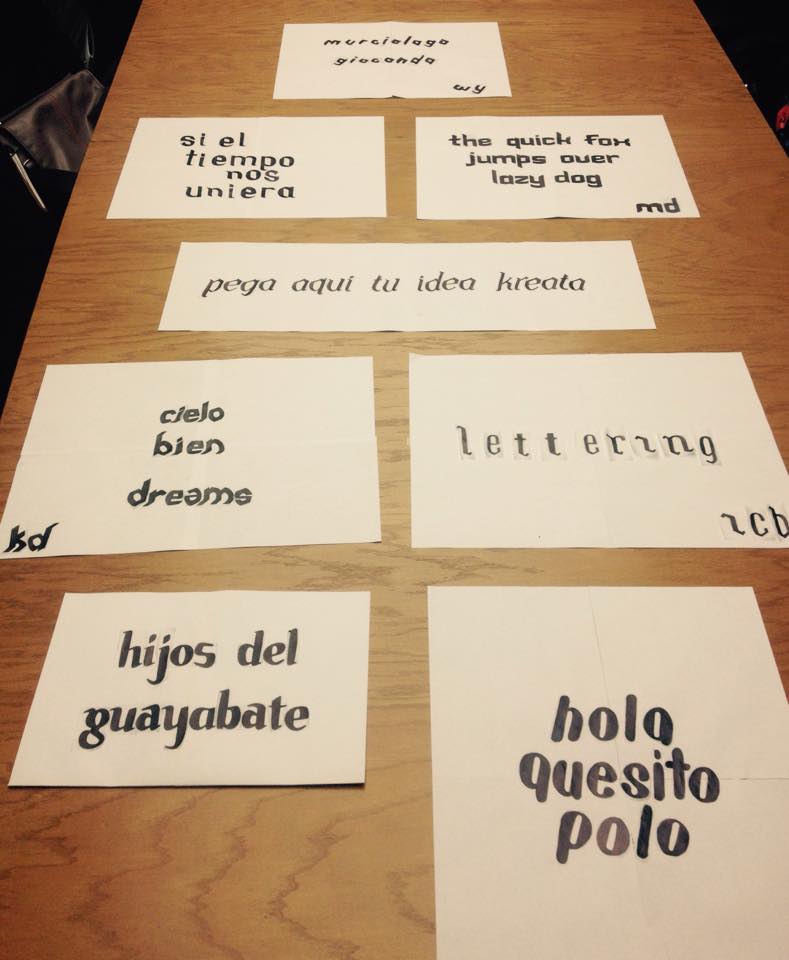 murcielago
gioconda
wy
si el
tiempo
nos
uniera
the quick fox
jumps over
lazy dog
md
pega aqui tu idea kreata
cielo
bien
dreams
kd
lettering
rcb
hijos del
guayabate
hola
quesito
polo